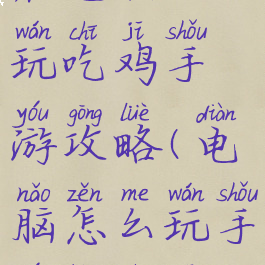 wán chī jī shǒu
玩吃鸡手
yóu gōng lüè diàn
游攻略(电
nǎo zěn me wán shǒu
脑怎么玩手